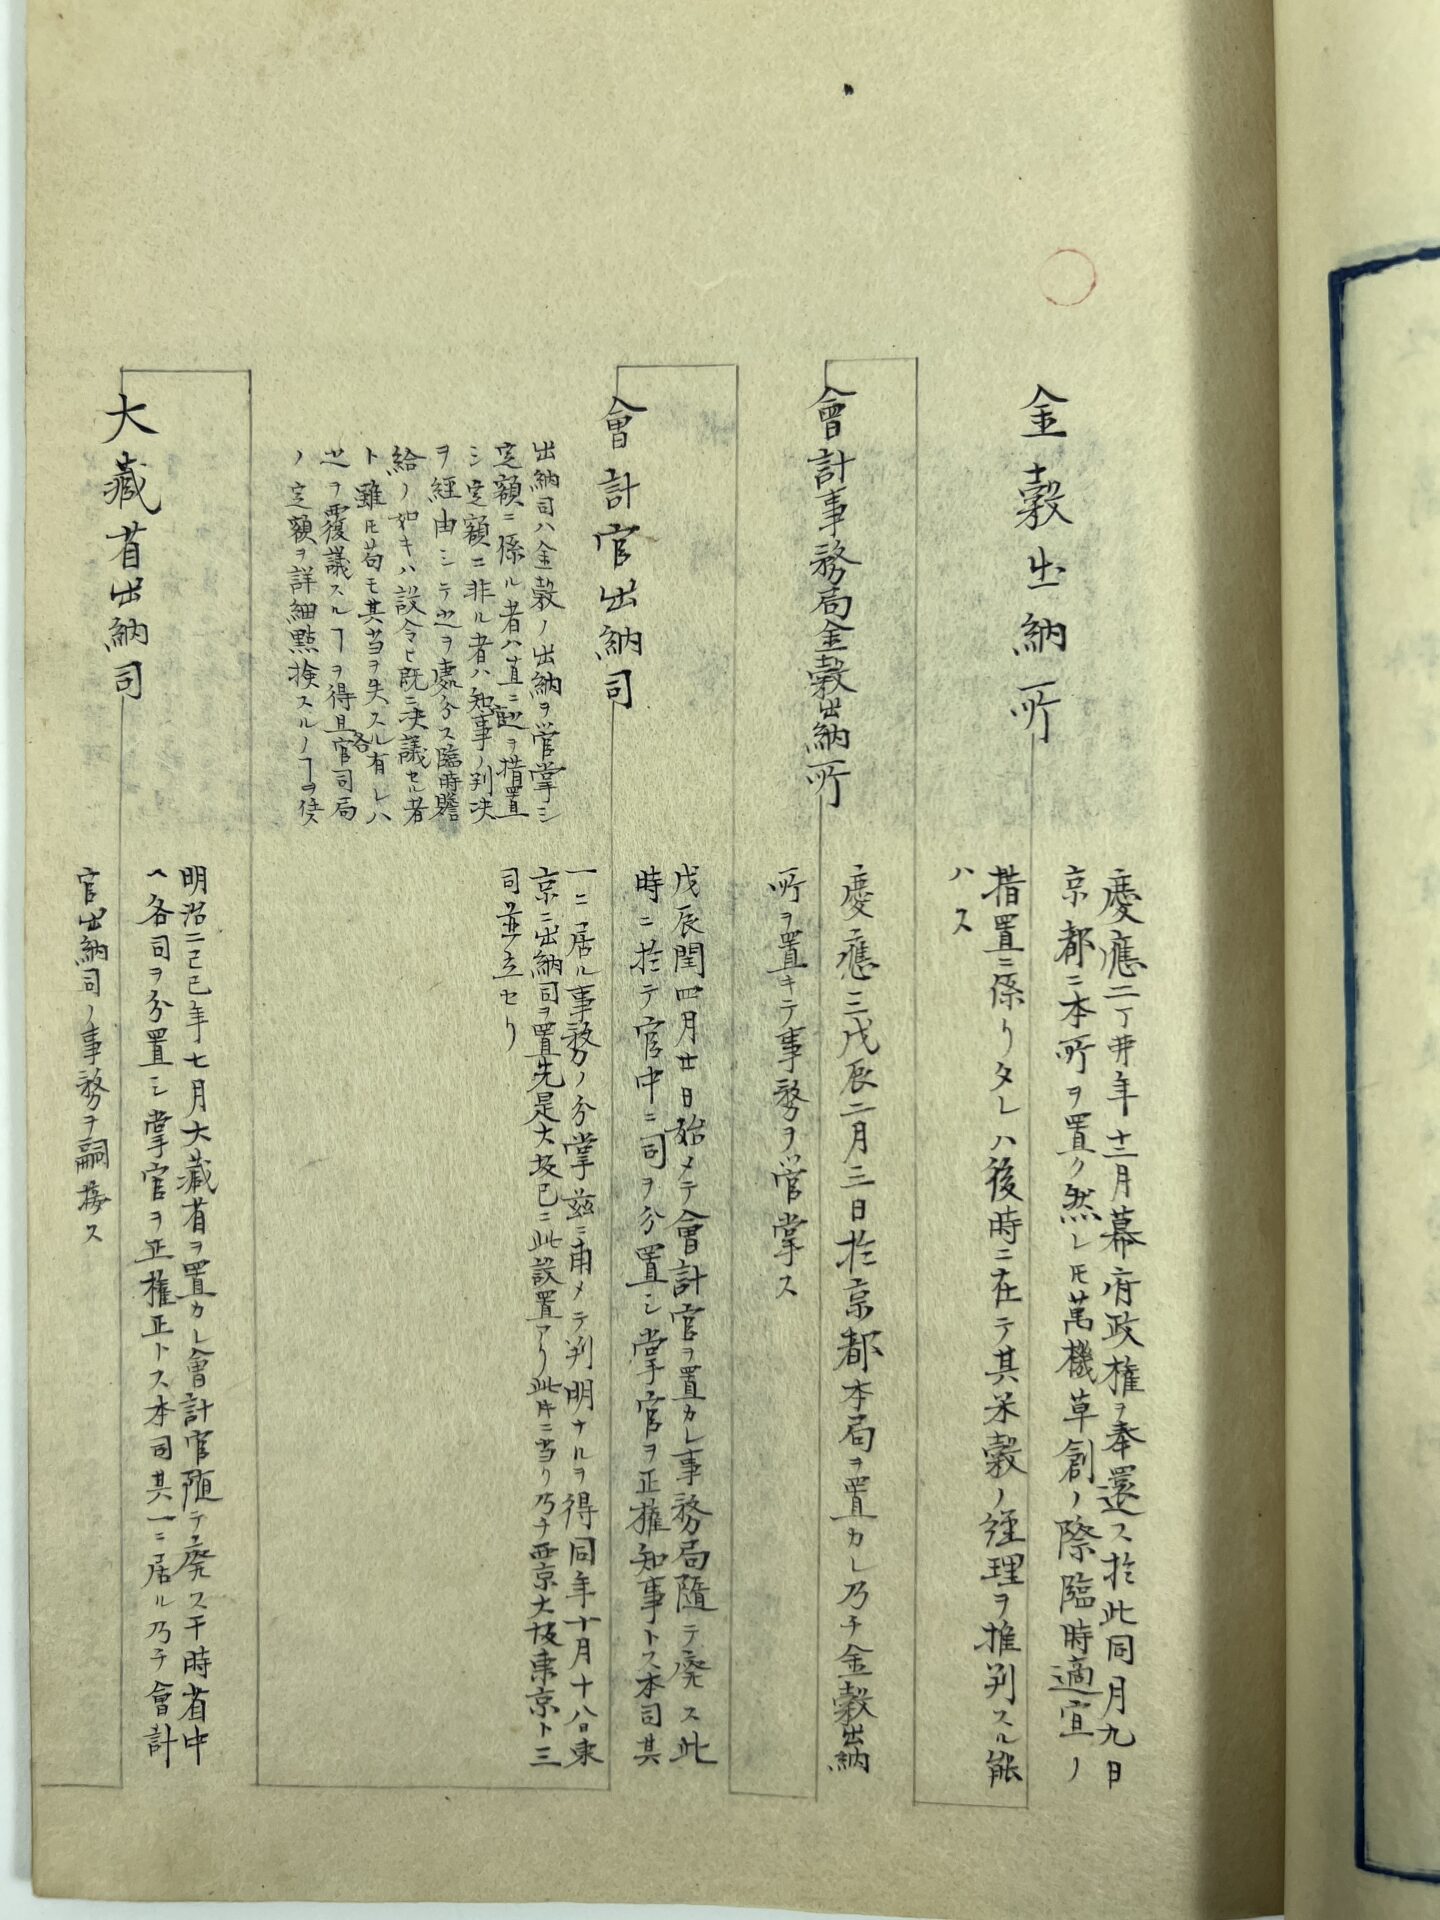 金穀出納所
慶應三丁卯年十二月幕府政権ヲ奉還ス於此同月九日
京都ニ本所ヲ置ク然レ𪜈萬機草創ノ際臨時適宜ノ
措置ニ係リタレハ後時ニ在テ其米穀ノ経理ヲ推判スル能
ハス
會計事務局金穀出納所
慶應三戊辰二月三日於京都本局ヲ置カレ乃チ金穀出納
所ヲ置キテ事務ヲ管掌ス
會計官出納司
戊辰閏四月廿日始メテ會計官ヲ置カレ事務局隨テ廃ス此
時ニ於テ官中ニ司ヲ分置シ掌官ヲ正権知事トス本司其
一ニ居ル事務ノ分掌茲ニ甫メテ判明ナルヲ得同年十月十八日東
京ニ出納司ヲ置先是大坂已ニ此設置アリ此時ニ当リ乃チ西京大坂東京ト三
司並立セリ
出納司ハ金穀ノ出納ヲ管掌シ
定額ニ係ル者ハ直ニ之ヲ措置
シ定額ニ非ル者ハ知事ノ判决
ヲ経由シテ之ヲ處分ス臨時贍
給ノ如キハ設令ヒ既ニ决議セル者
ト雖𪜈苟モ其当ヲ失スル有レハ
之ヲ覆議スルヿヲ得且各官司局
ノ定額ヲ詳細點検スルノヿヲ
大藏省出納司
明治二己巳年七月大藏省ヲ置カレ會計官随テ廃ス于時省中
ヘ各司ヲ分置シ掌官ヲ正権正トス本司其一ニ居ル乃チ會計
官出納司ノ事務ヲ嗣接ス